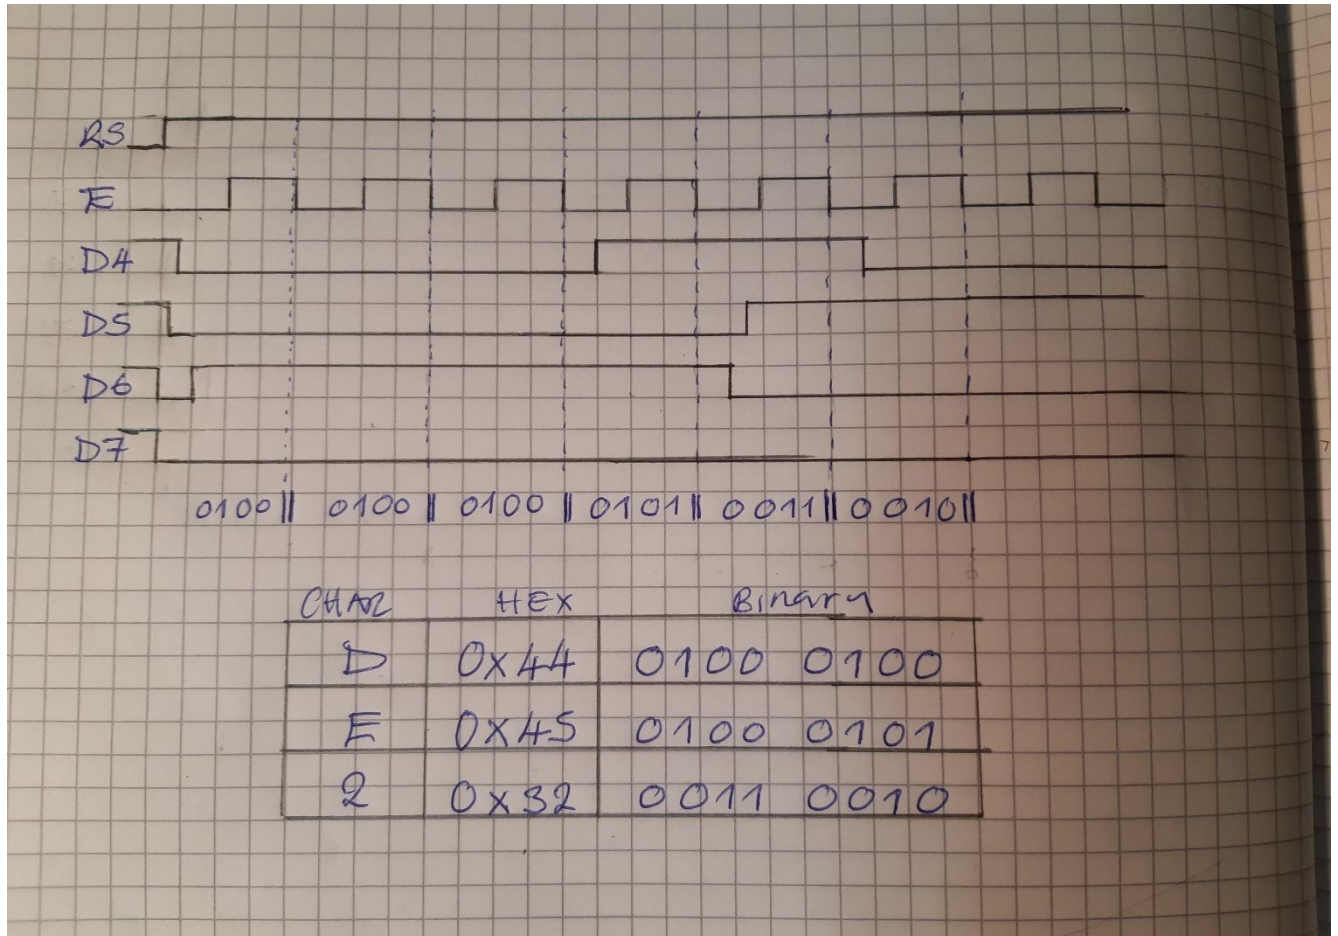 RS
E
D4
D5
D6
D7
0100 || 0100 | 0100 || 0101 || 0011 || 0010 ||
CHAR HEX Binary
D 0x44 0100 0100
E 0x45 0100 0101
2 0x32 0011 0010